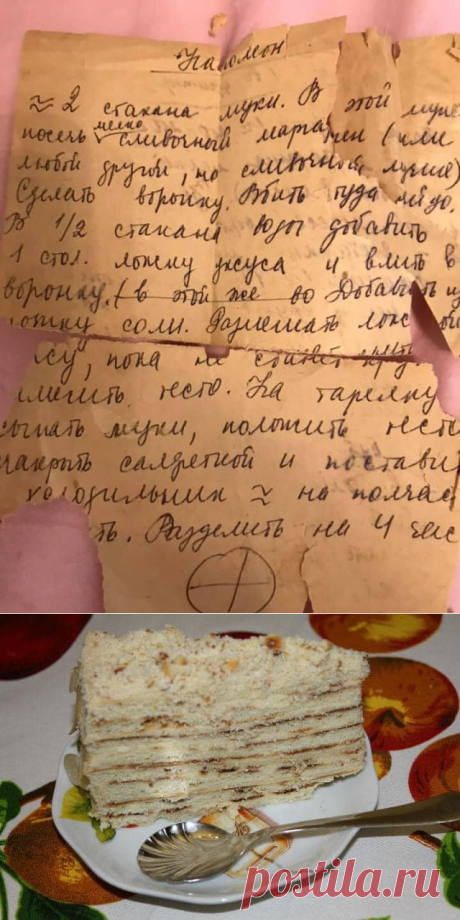 Наполеон
≈ 2 стакана муки. В этой муке
посечь мелко сливочный маргарин (или
любой другой, но сливочный лучше)
Сделать воронку. Вбить туда яйцо.
В 1/2 стакана воды добавить
1 стол. ложку уксуса и влить в
воронку. (в этой же во Добавить
ложку соли. Размешать лож
су, пока не станет
месить тесто. На тарелку
сыпать муки, положить тесто
накрыть салфеткой и постави
холодильник ≈ на полчас
ть. Разделить на 4 час
postila.ru